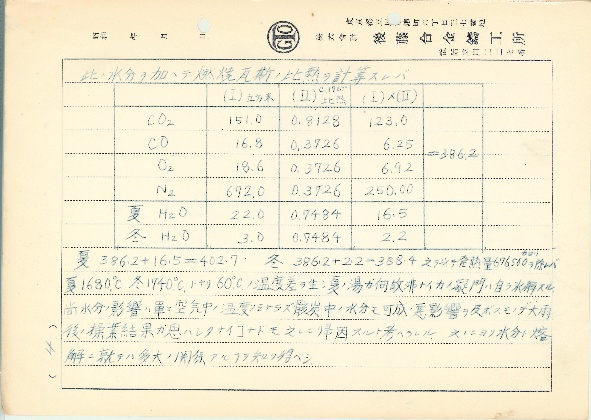 昭和 年 月 日
株式会社 後藤合金鑄工所
此ノ水分ヲ加ヘテ燃焼瓦斯ノ比熱ヲ計算スレバ
(I)立方米 (II) 比熱 (I)×(II)
CO2 151.0 0.8128 123.0
CO 16.8 0.3726 6.25
O2 18.6 0.3726 6.92
N2 672.0 0.3726 250.00
=386.2
夏 H2O 22.0 0.7484 16.5
冬 H2O 3.0 0.7484 2.2
夏 386.2+16.5=402.7 冬 386.2+2.2=388.4 発熱量676500ヲ除レバ
夏1680℃ 冬1740℃トナリ60℃ノ温度差ヲ生ジ夏ノ湯ガ何故沸ナイカノ疑問ハ自ラ氷解スル
尚水分ノ影響ハ単ニ空気中ノ湿度ノミナラズ骸炭中ノ水分モ可成ノ悪影響ヲ及ボスモノデ大雨
後ノ操業結果ガ思ハシクナイコトモ之レニ帰因スルト考ヘラレル 之レニヨリ水分ト熔
解ニ就テハ多大ノ関係アルヲ知リ得ベシ
(4)